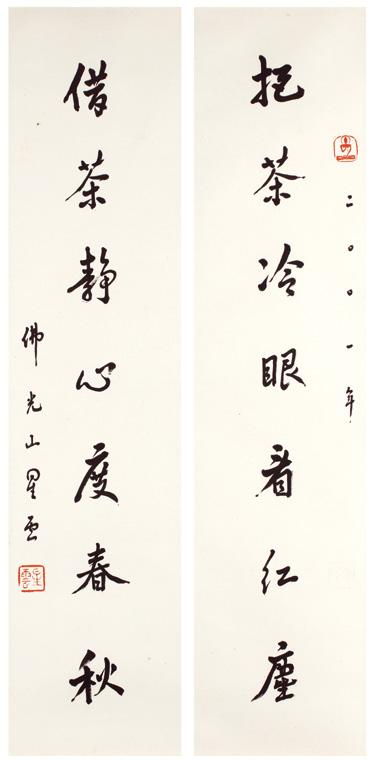 二〇〇一年
把茶冷眼看紅塵
借茶靜心度春秋
佛光山星雲
星雲